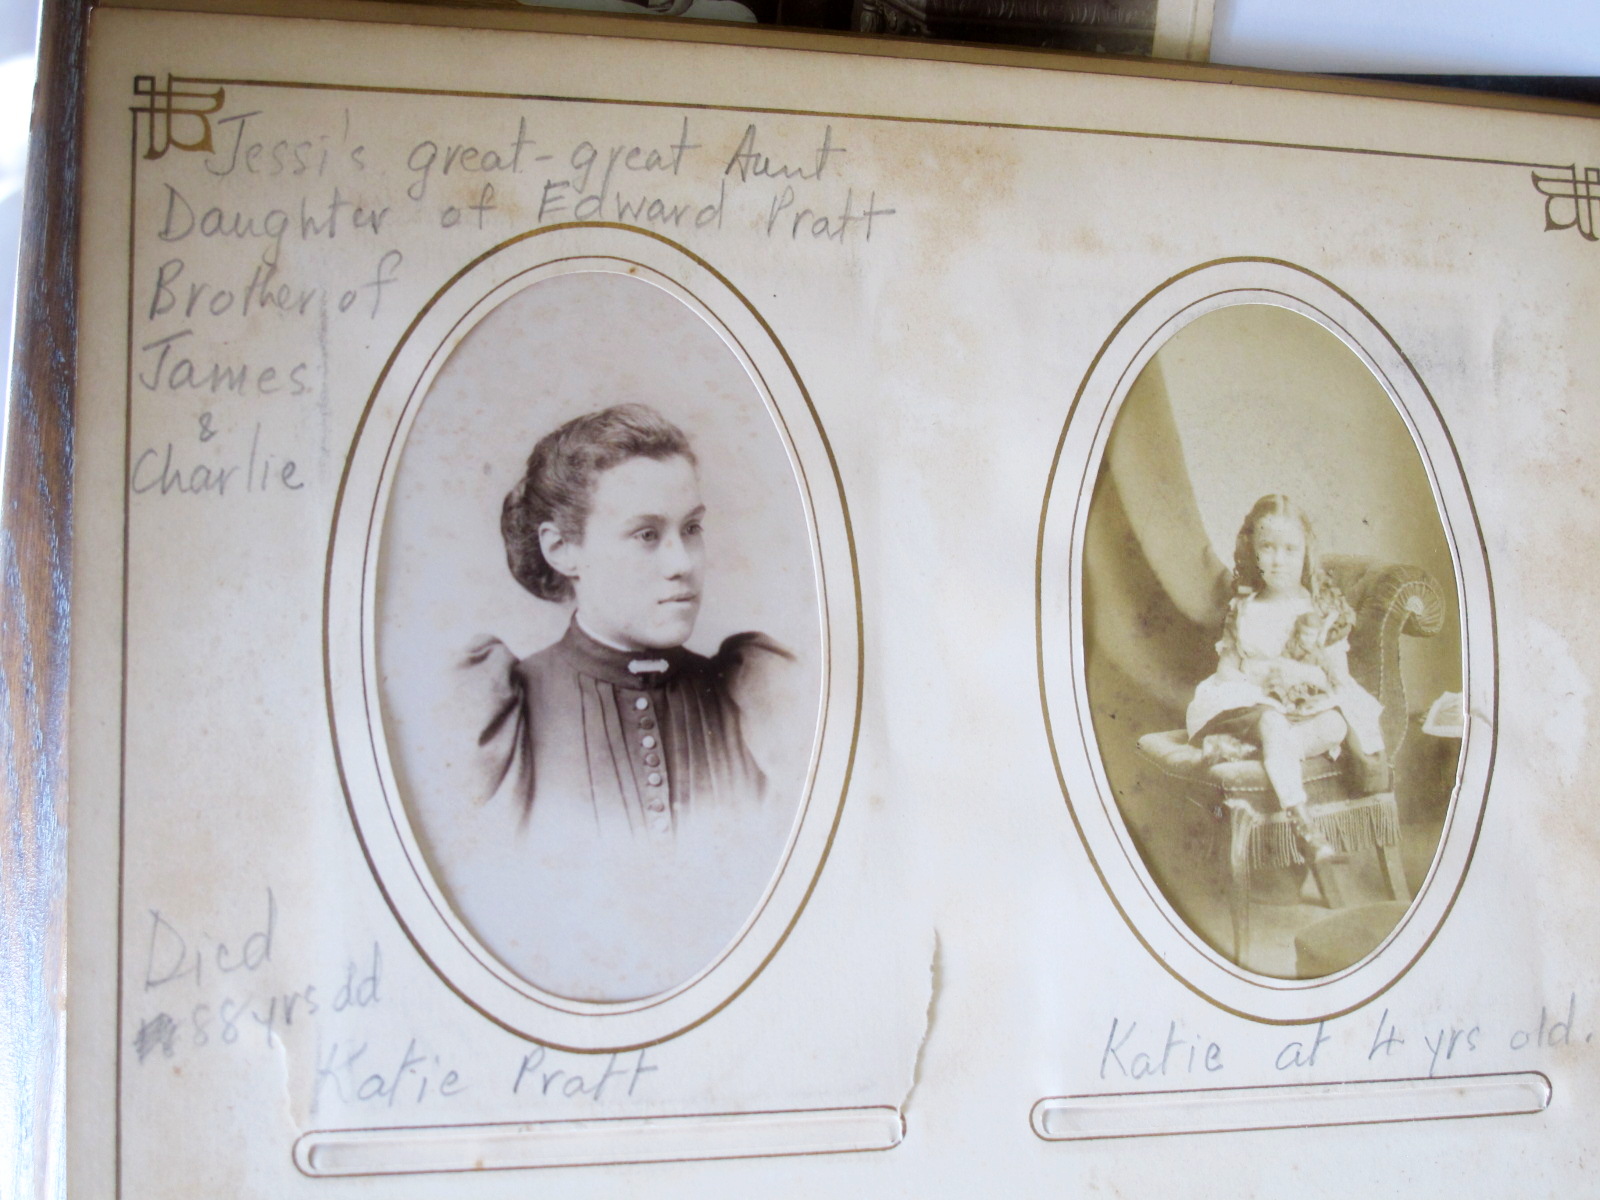 Jessi's great-great Aunt
Daughter of Edward Pratt
Brother of
James
&
Charlie
Died
88 yrs old
Katie Pratt
Katie at 4 yrs old.